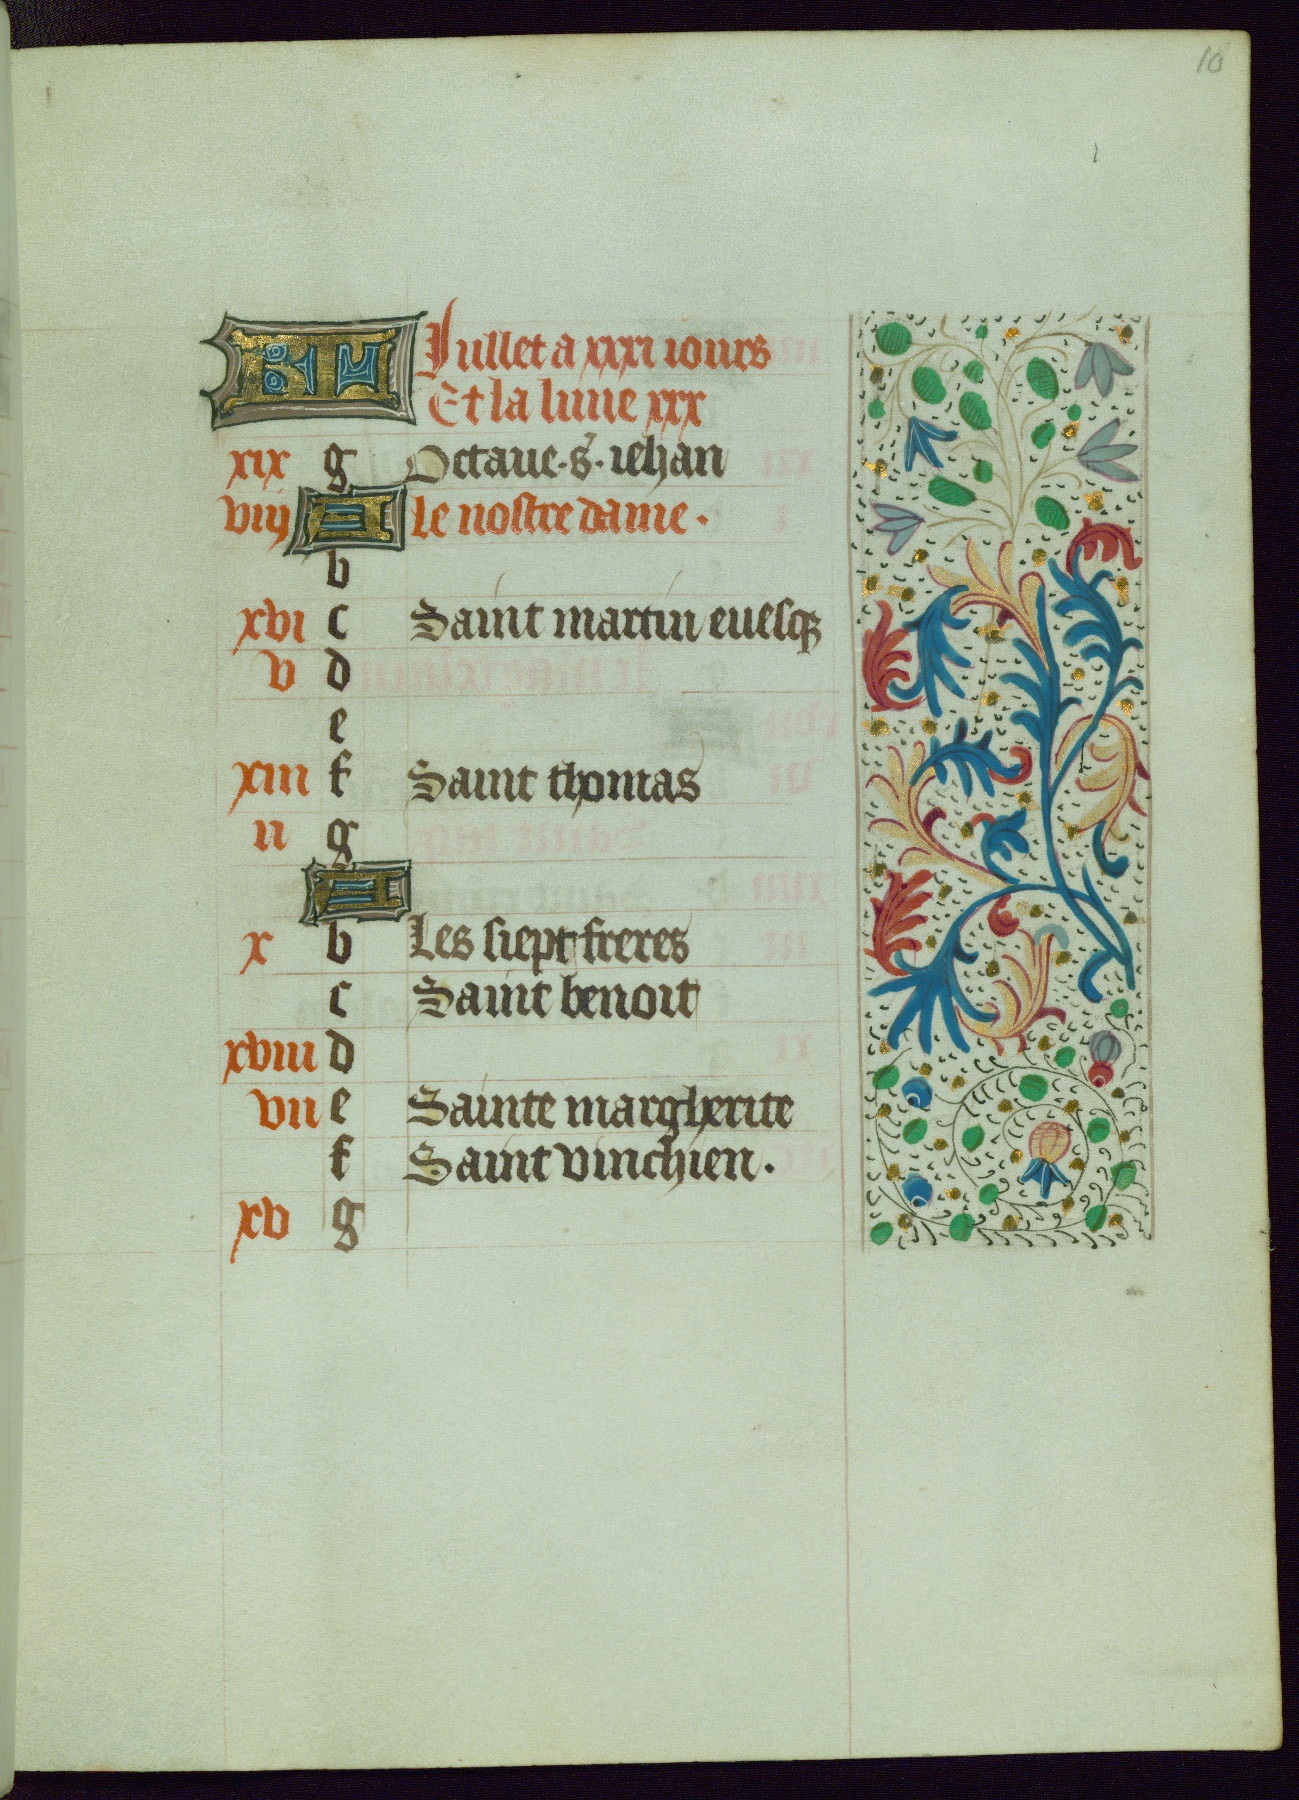 10
KL Jullet a xxxi iours
Et la lune xxx
xix g Octaue · s̄ · iehan
viij A le nostre dame ·
b
xvi c Saint martin euesq̃
v d
e
xiii f Saint thomas
ii g
A
x b Les siept freres
c Saint benoit
xviii d
vii e Sainte margherite
f Saint vinchien ·
xv g